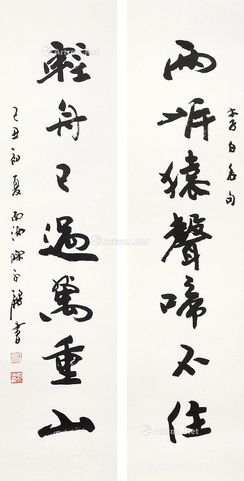 李白名句
兩岸猿聲啼不住
輕舟已過萬重山
己丑初夏 書